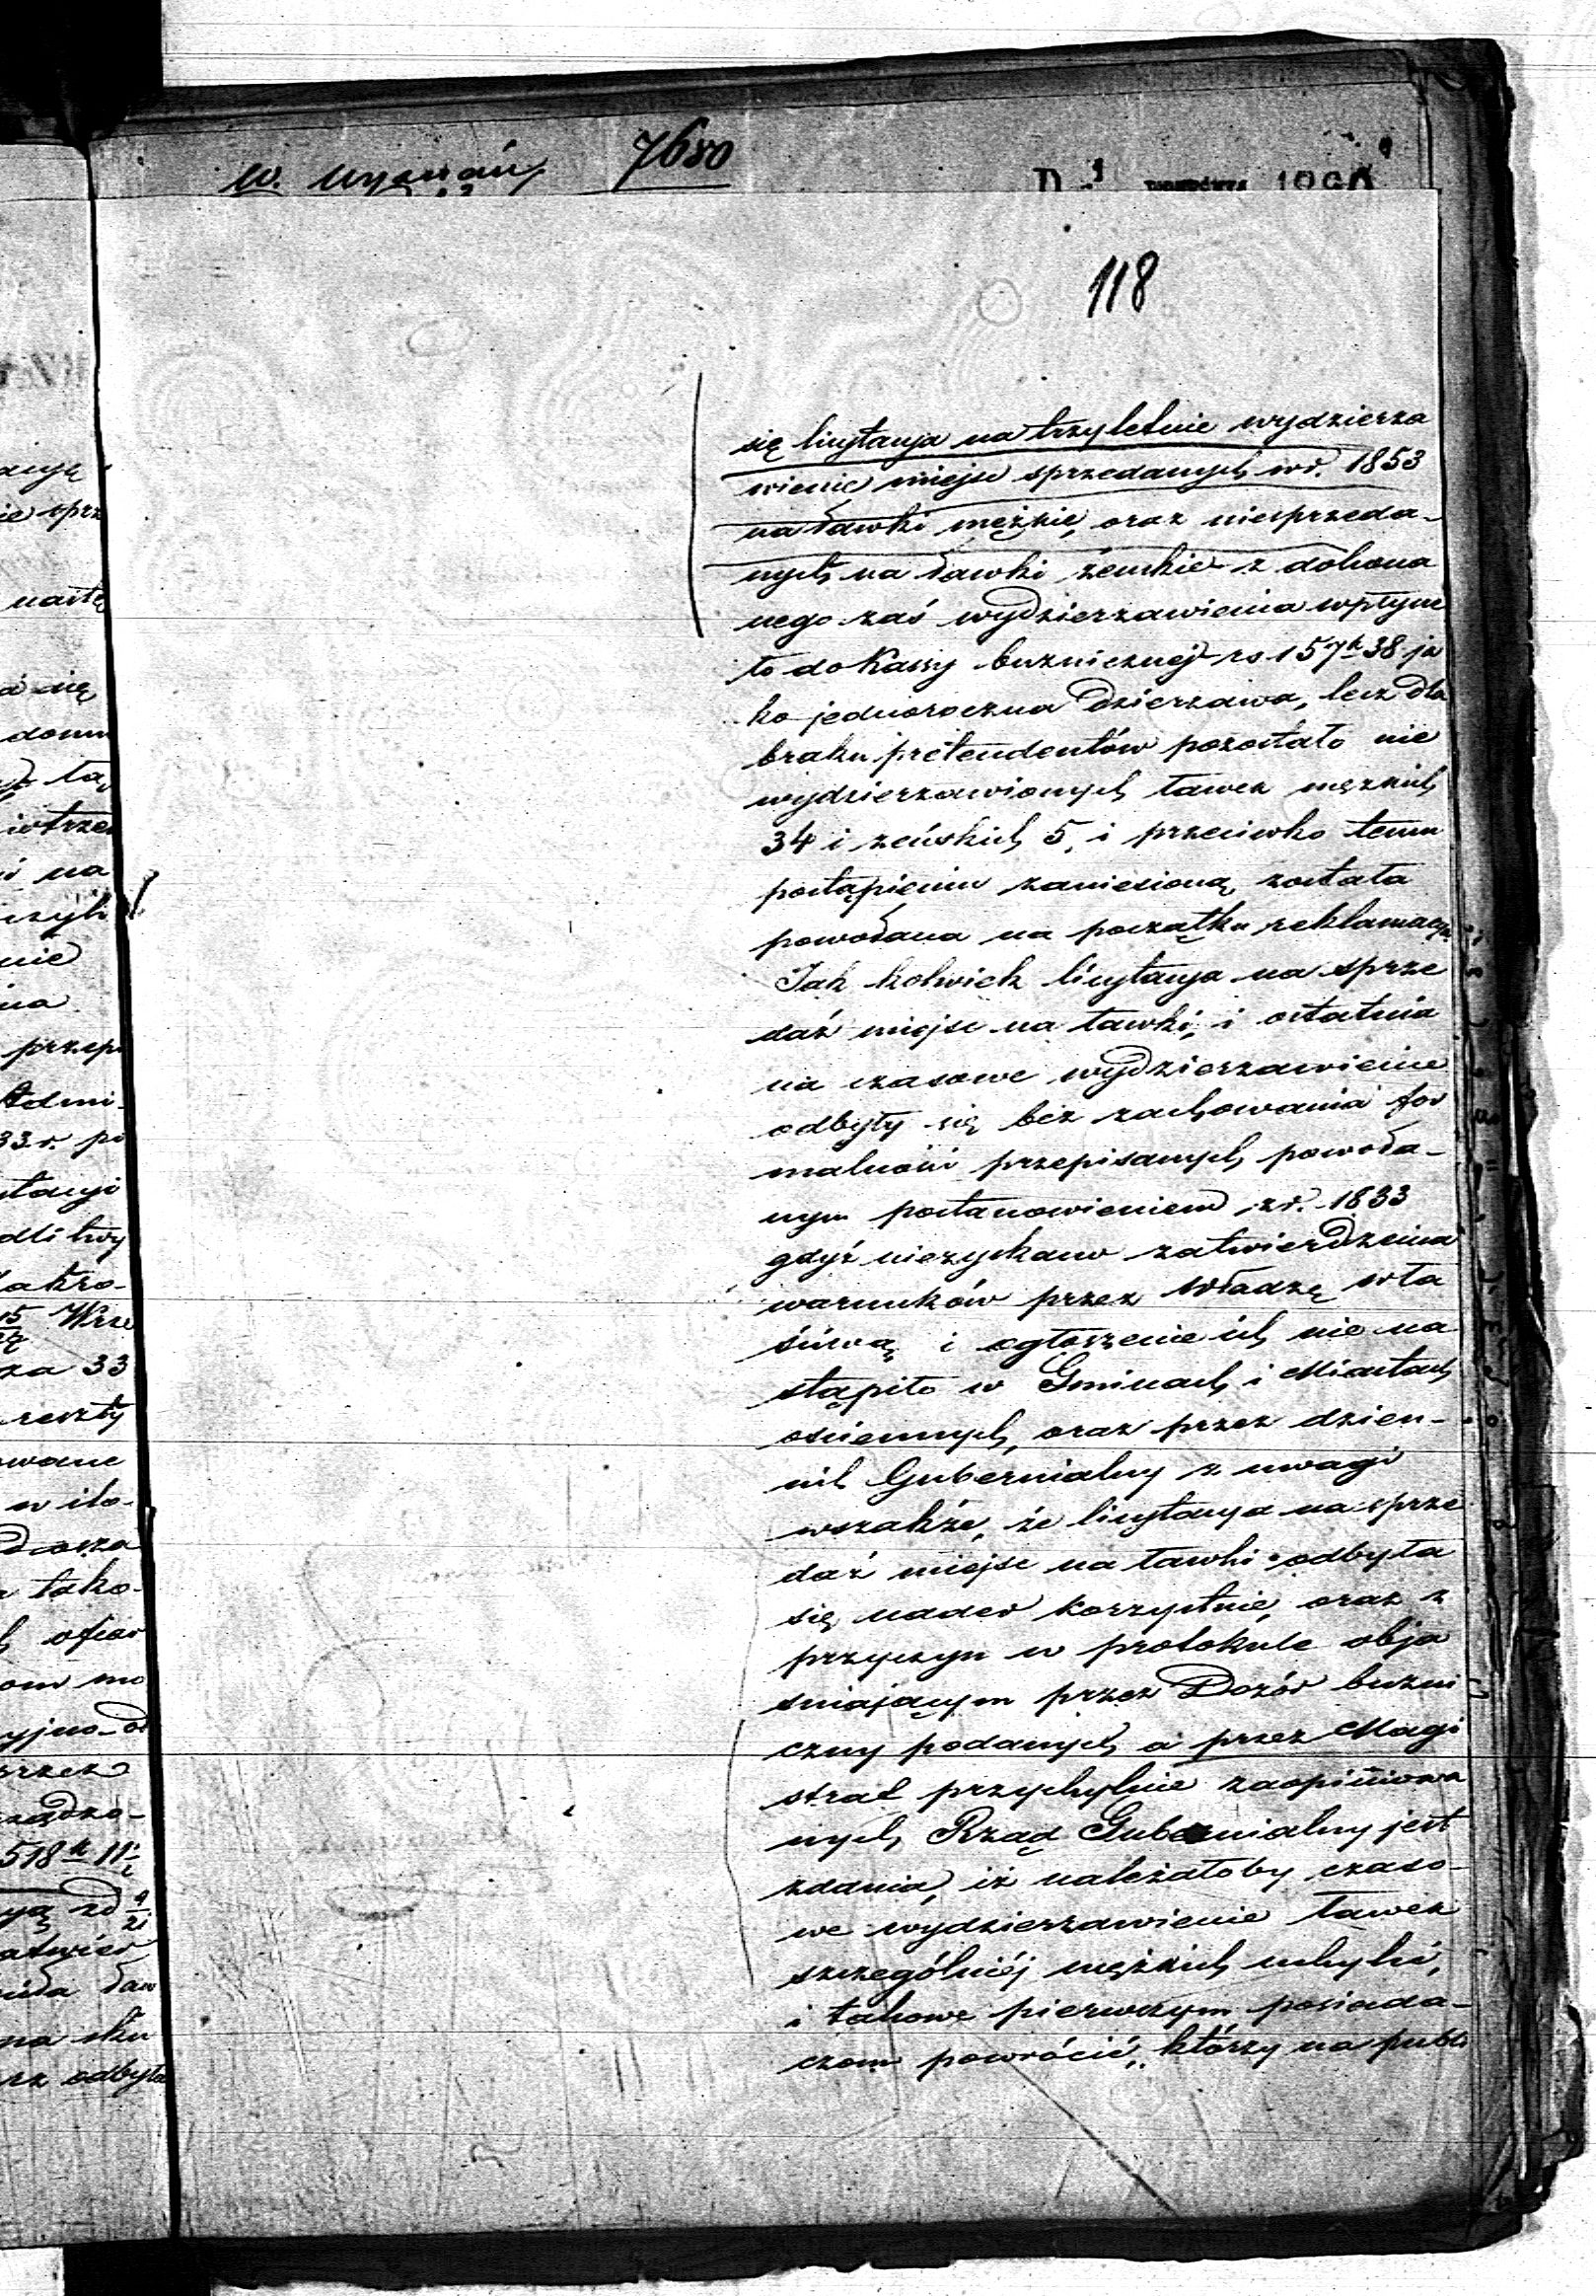 W. Wyznań 7680
118
się licytacya na trzyletnie wydzierza
wienie miejsc sprzedanych w r. 1853
na ławki męzkie, oraz niesprzeda-
nych na ławki żeńskie z dokona
nego zaś wydzierzawienia wpłynę
ło do Kassy bużnicznej rs 157 k 38 ja
ko jednoroczna Dzierzawa, lecz dla
braku pretendentów pozostało nie
wydzierzawionych ławek męzkich
34 i zeńskich 5, i przeciwko temu
postąpieniu zaniesioną została
powołana na początku reklamacya
Jak kolwiek licytacya na sprze
daż miejsc na ławki, i ostatnia
na czasowe wydzierzawienie
odbyły się bez zachowania for
malności przepisanych powoła-
nym postanowieniem z r. 1833
gdyż niezyskano zatwierdzenia
warunków przez Władzę wła
ściwą i ogłoszenie ich nie na
stąpiło w Gminach i Miastach
ościennych, oraz przez dzien-
nik Gubernialny z uwagi
wszakże, że licytacya na sprze
daż miejsc na ławki odbyła
się nader korzystnie, oraz z
przyczyn w protokule obja
śniającym przez Dozór bużni
czny podanych, a przez Magi
strat przychylnie zaopiniowa
nych, Rząd Gubernialny jest
zdania, iż należałoby czaso-
we wydzierzawienie ławek
szczególniéj męzkich uchylić,
i takowe pierwszym posiada-
czom powrócić, którzy na publi